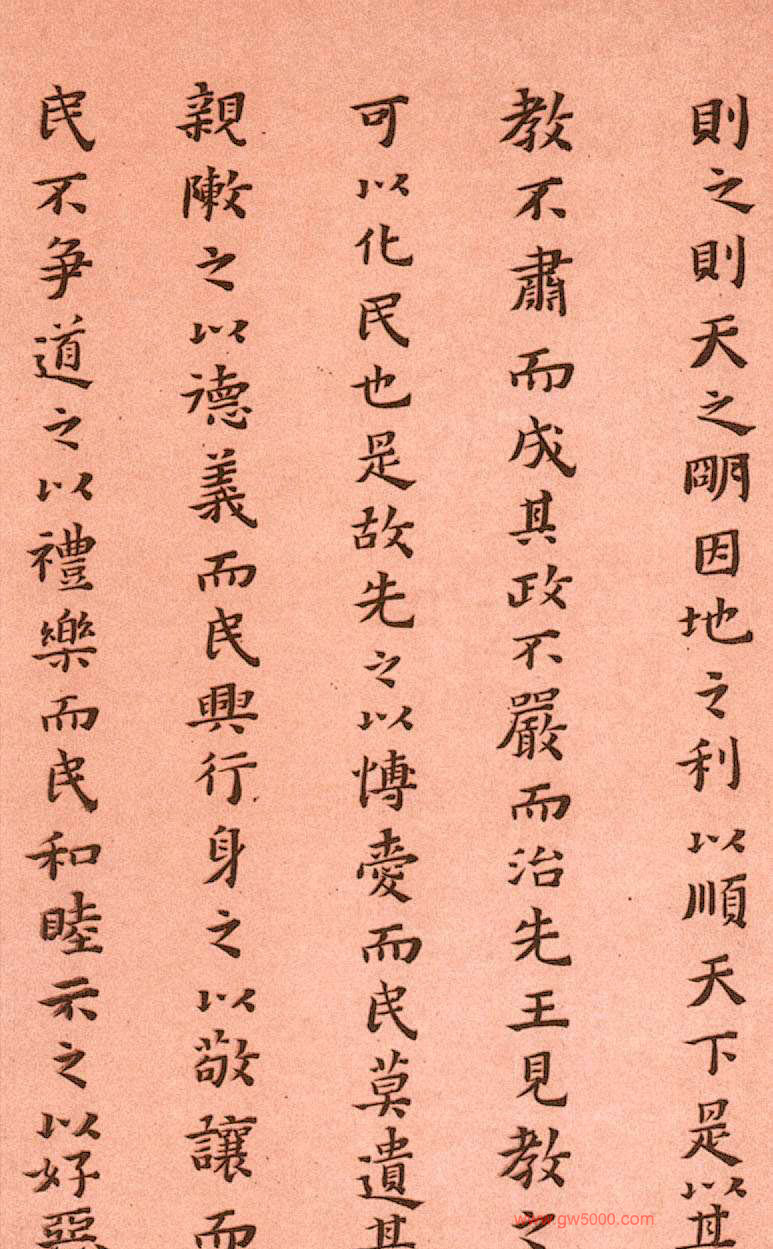 則之則天之明因地之利以順天下是以其
教不肅而成其政不嚴而治先王見教之
可以化民也是故先之以博愛而民莫遺其
親敶之以德義而民興行身之以敬讓而
民不爭道之以禮樂而民和睦示之以好惡
www.gw5000.com